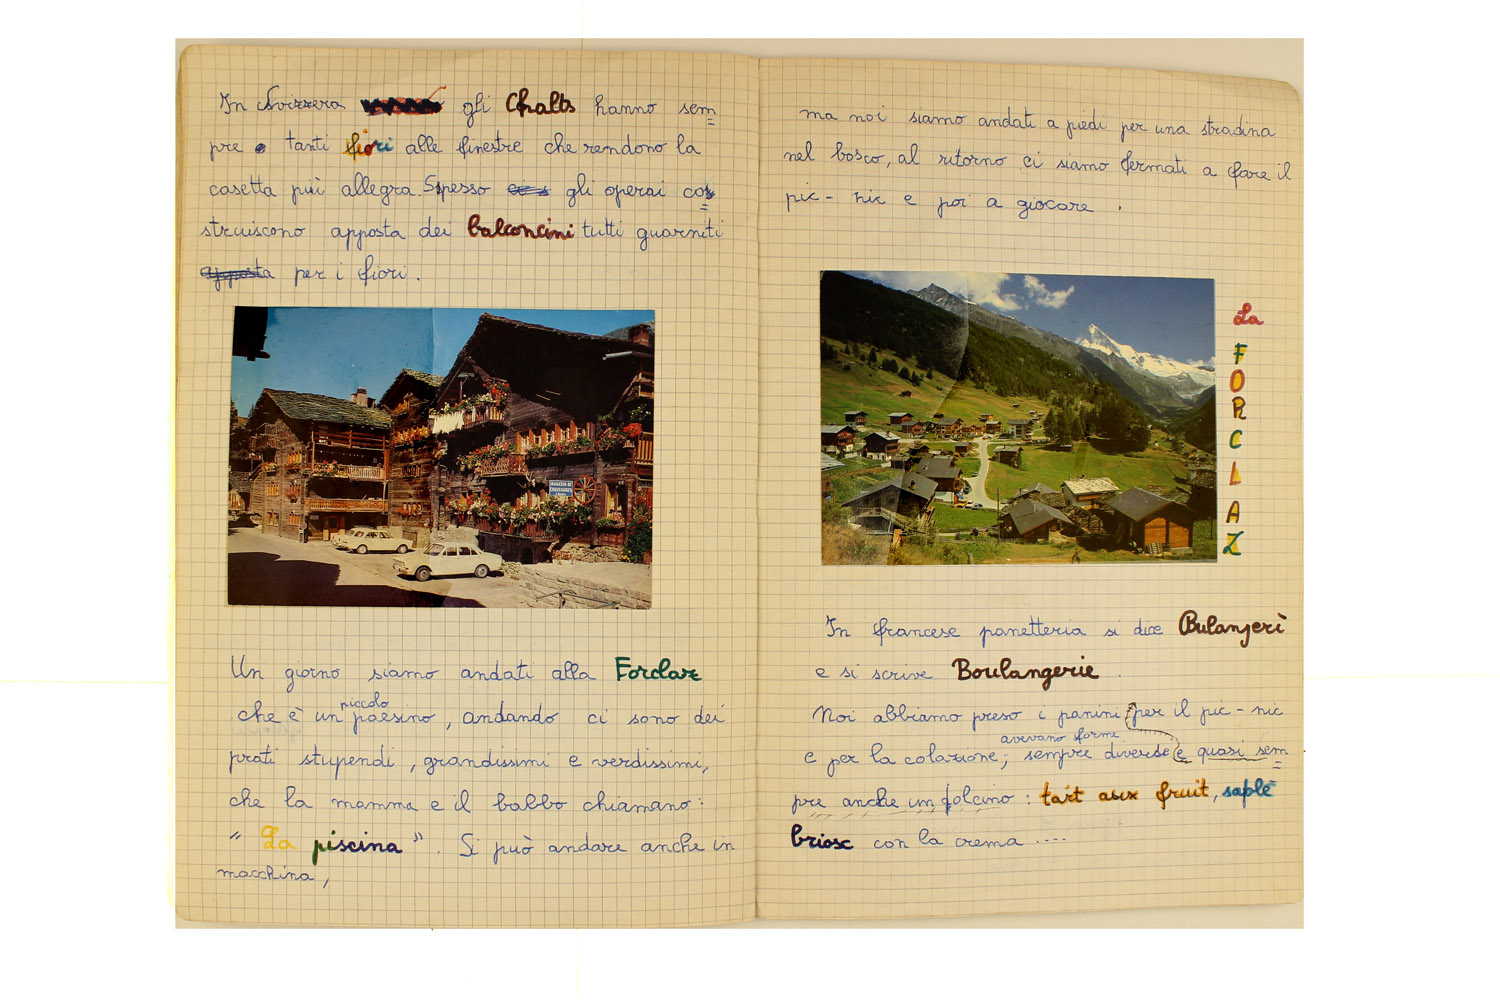 In Svizzera gli Chalts hanno sem
pre tanti fiori alle finestre che rendono la
casetta più allegra. Spesso gli operai cos
struiscono apposta dei balconcini tutti guarniti
apposta per i fiori.
MAGASIN DE
CHAUSSURES
Un giorno siamo andati alla Forclaz
che è un piccolo paesino, andando ci sono dei
prati stupendi, grandissimi e verdissimi,
che la mamma e il babbo chiamano:
" La piscina". Si può andare anche in
macchina,
ma noi siamo andati a piedi per una stradina
nel bosco, al ritorno ci siamo fermati a fare il
pic-nic e poi a giocare.
La
FORCLAZ
In francese panetteria si dice Bulanjerì
e si scrive Boulangerie.
Noi abbiamo preso i panini per il pic-nic
avevano forme
e per la colazione; sempre diverse e quasi sem
pre anche un dolcino: tart aux fruit, saplè
briosc con la crema ....